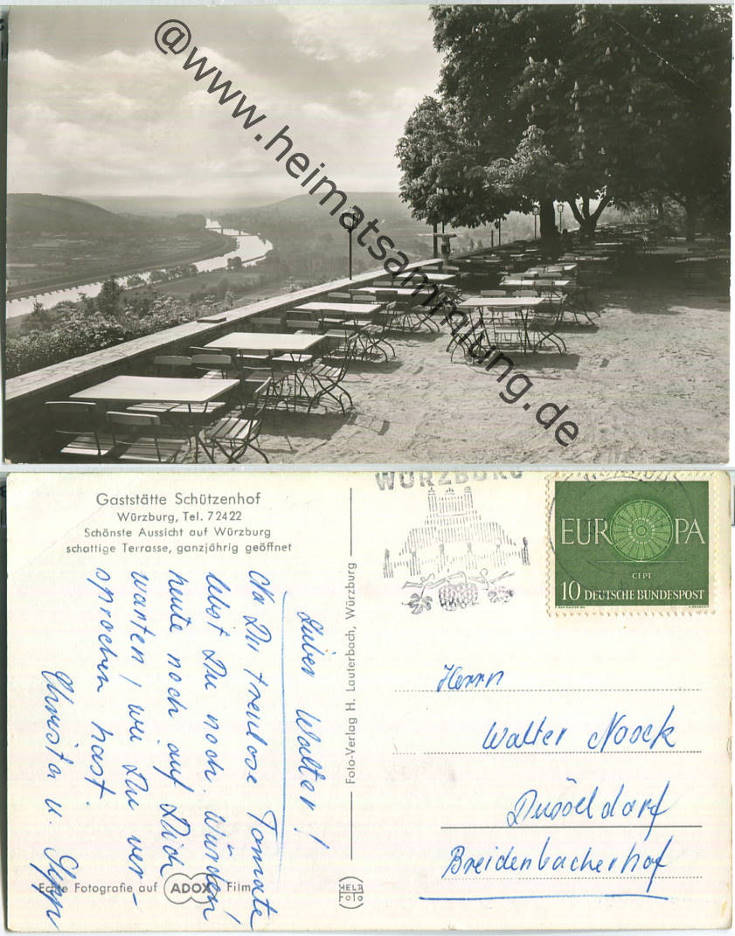 @www.heimatsammlung.de
Gaststätte Schützenhof
Würzburg, Tel. 72422
Schönste Aussicht auf Würzburg
schattige Terrasse, ganzjährig geöffnet
Lieber Walter!
Na Du treulose Tomate
lebst Du noch. Würden
heute noch auf Dich
warten, wie Du ver-
sprochen hast.
Christa u.
Echte Fotografie auf ADOX Film
Foto-Verlag H. Lauterbach, Würzburg
HELA
Foto
WÜRZBURG
EUROPA
CEPT
10 DEUTSCHE BUNDESPOST
Herrn
Walter Noack
Düsseldorf
Breidenbacherhof